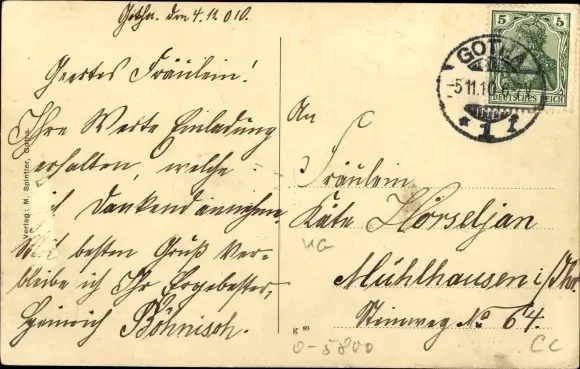 Gotha. den 4.11.010.
Geertes Fräulein!
Ihre Werte Einladung
erhalten, welche
ich Dankend annehme.
Mit besten Gruß ver-
bleibe ich Ihr Ergebester,
Heinrich Böhnisch.
An
Fräulein
Käte Hörseljan
Mühlhausen i/Thr.
Steinweg No 64.
Verlag: M. Spintler, Gotha
5 5
DEUTSCHES REICH
GOTHA
-5.11.10.6-7V.
* 1 I
UG
0-5800
CC